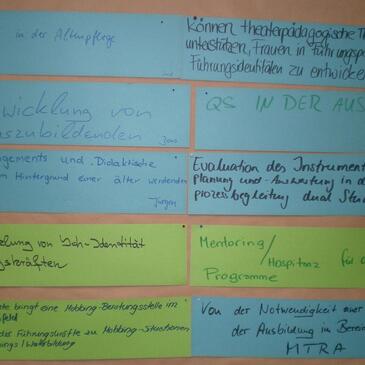 in der Altenpflege
Können theaterpädagogische
unterstützen, Frauen in
Führungsidentitäten zu
wicklung von
szubildenden
QS IN DER AUS
gements und Didaktische
Hintergrund einer älter werdenden
Jürgen
Evaluation des Instrument
planung und Auswertung in
prozessbegleitung dual
lung von Ich-Identität
gskräften
Mentoring/
Hospitanz für
Programme
bringt eine Mobbing-Beratungsstelle im
feld
der Führungskräfte zu Mobbing-Situationen
Von der Notwendigkeit einer
der Ausbildung im Bereich
MTRA